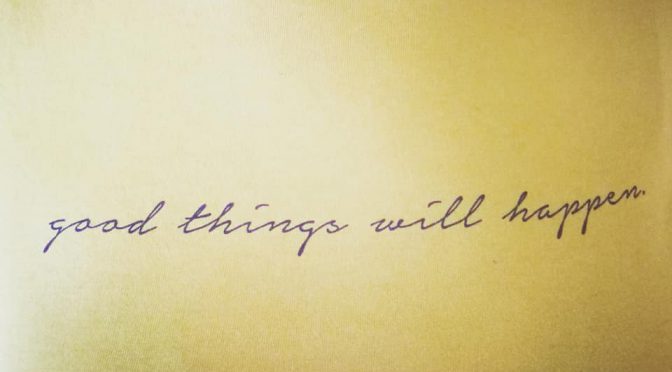 good things will happen.